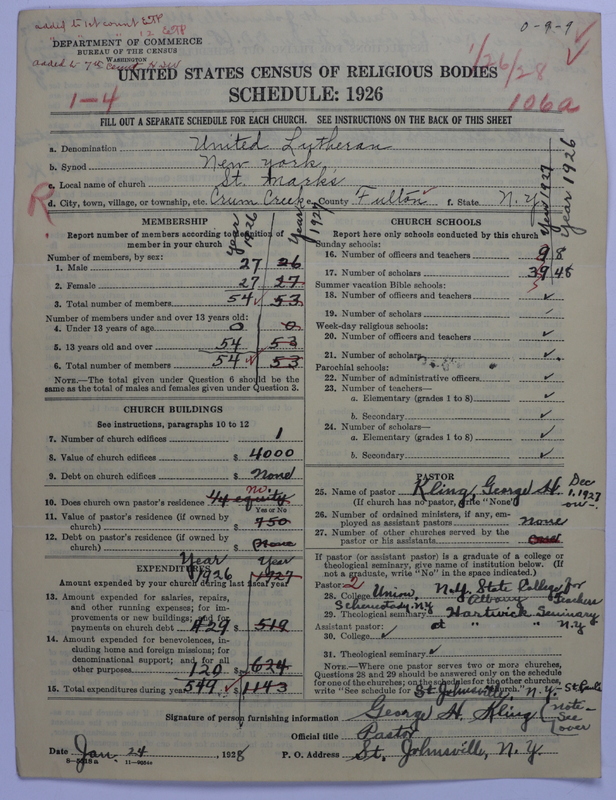 added to 1st count ETP
" " " 12 ETP
O-9-9
DEPARTMENT OF COMMERCE
BUREAU OF THE CENSUS
WASHINGTON
added to 7th count
1/26/28
UNITED STATES CENSUS OF RELIGIOUS BODIES
1-4
SCHEDULE: 1926
106a
FILL OUT A SEPARATE SCHEDULE FOR EACH CHURCH. SEE INSTRUCTIONS ON THE BACK OF THIS SHEET
a. Denomination United Lutheran
b. Synod New York
c. Local name of church St. Mark's
R
d. City, town, village, or township, etc. Crum Creek e. County Fulton f. State N.Y.
Year 1927 Year 1926
MEMBERSHIP
Report number of members according to definition of
member in your church
Year 1926 Year 1927
Number of members, by sex:
1. Male 27 26
2. Female 27 27
3. Total number of members 54 53
Number of members under and over 13 years old:
4. Under 13 years of age 0 0
5. 13 years old and over 54 53
6. Total number of members 54 53
NOTE.—The total given under Question 6 should be
the same as the total of males and females given under Question 3.
CHURCH BUILDINGS
See instructions, paragraphs 10 to 12
7. Number of church edifices 1
8. Value of church edifices $ 4000
9. Debt on church edifices $ None
no.
10. Does church own pastor's residence 1/4 equity
Yes or No
11. Value of pastor's residence (if owned by
church) $ 750
12. Debt on pastor's residence (if owned by
church) $ None
Year 1926 Year 1927
EXPENDITURES
Amount expended by your church during last fiscal year
13. Amount expended for salaries, repairs,
and other running expenses; for im-
provements or new buildings; and for
payments on church debt 429 $ 519
14. Amount expended for benevolences, in-
cluding home and foreign missions; for
denominational support; and for all
other purposes 120 $ 624
15. Total expenditures during year 549 $ 1143
CHURCH SCHOOLS
Report here only schools conducted by this church
Sunday schools:
16. Number of officers and teachers 9 8
17. Number of scholars 39 48
Summer vacation Bible schools:
18. Number of officers and teachers ✓
19. Number of scholars ✓
Week-day religious schools:
20. Number of officers and teachers ✓
21. Number of scholars ✓
Parochial schools:
22. Number of administrative officers ✓
23. Number of teachers—
a. Elementary (grades 1 to 8) ✓
b. Secondary ✓
24. Number of scholars—
a. Elementary (grades 1 to 8) ✓
b. Secondary ✓
PASTOR
25. Name of pastor Kling, George H. Dec 1, 1927
(If church has no pastor, write "None")
26. Number of ordained ministers, if any, em-
ployed as assistant pastors None
27. Number of other churches served by the
pastor or his assistants
If pastor (or assistant pastor) is a graduate of a college or
theological seminary, give name of institution below. (If
not a graduate, write "No" in the space indicated.)
Pastor:
28. College Union, N.Y. State College for
Schenectady, N.Y. Albany Teachers
29. Theological seminary Hartwick Seminary
Assistant pastor: at " " N.Y
30. College ✓
31. Theological seminary ✓
NOTE.—Where one pastor serves two or more churches,
Questions 28 and 29 should be answered only on the schedule
for one of the churches; on the schedules for the other churches,
write "See schedule for St Johnsville, N.Y.- St Pauls church."
Signature of person furnishing information George H. Kling (Note- See over
Official title Pastor
Date Jan. 24, 1928
P. O. Address St. Johnsville, N.Y.
8-5518a 11-9054